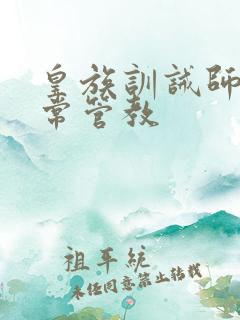 皇族訓誡師
常管教
祖平統
未任同意禁止转载